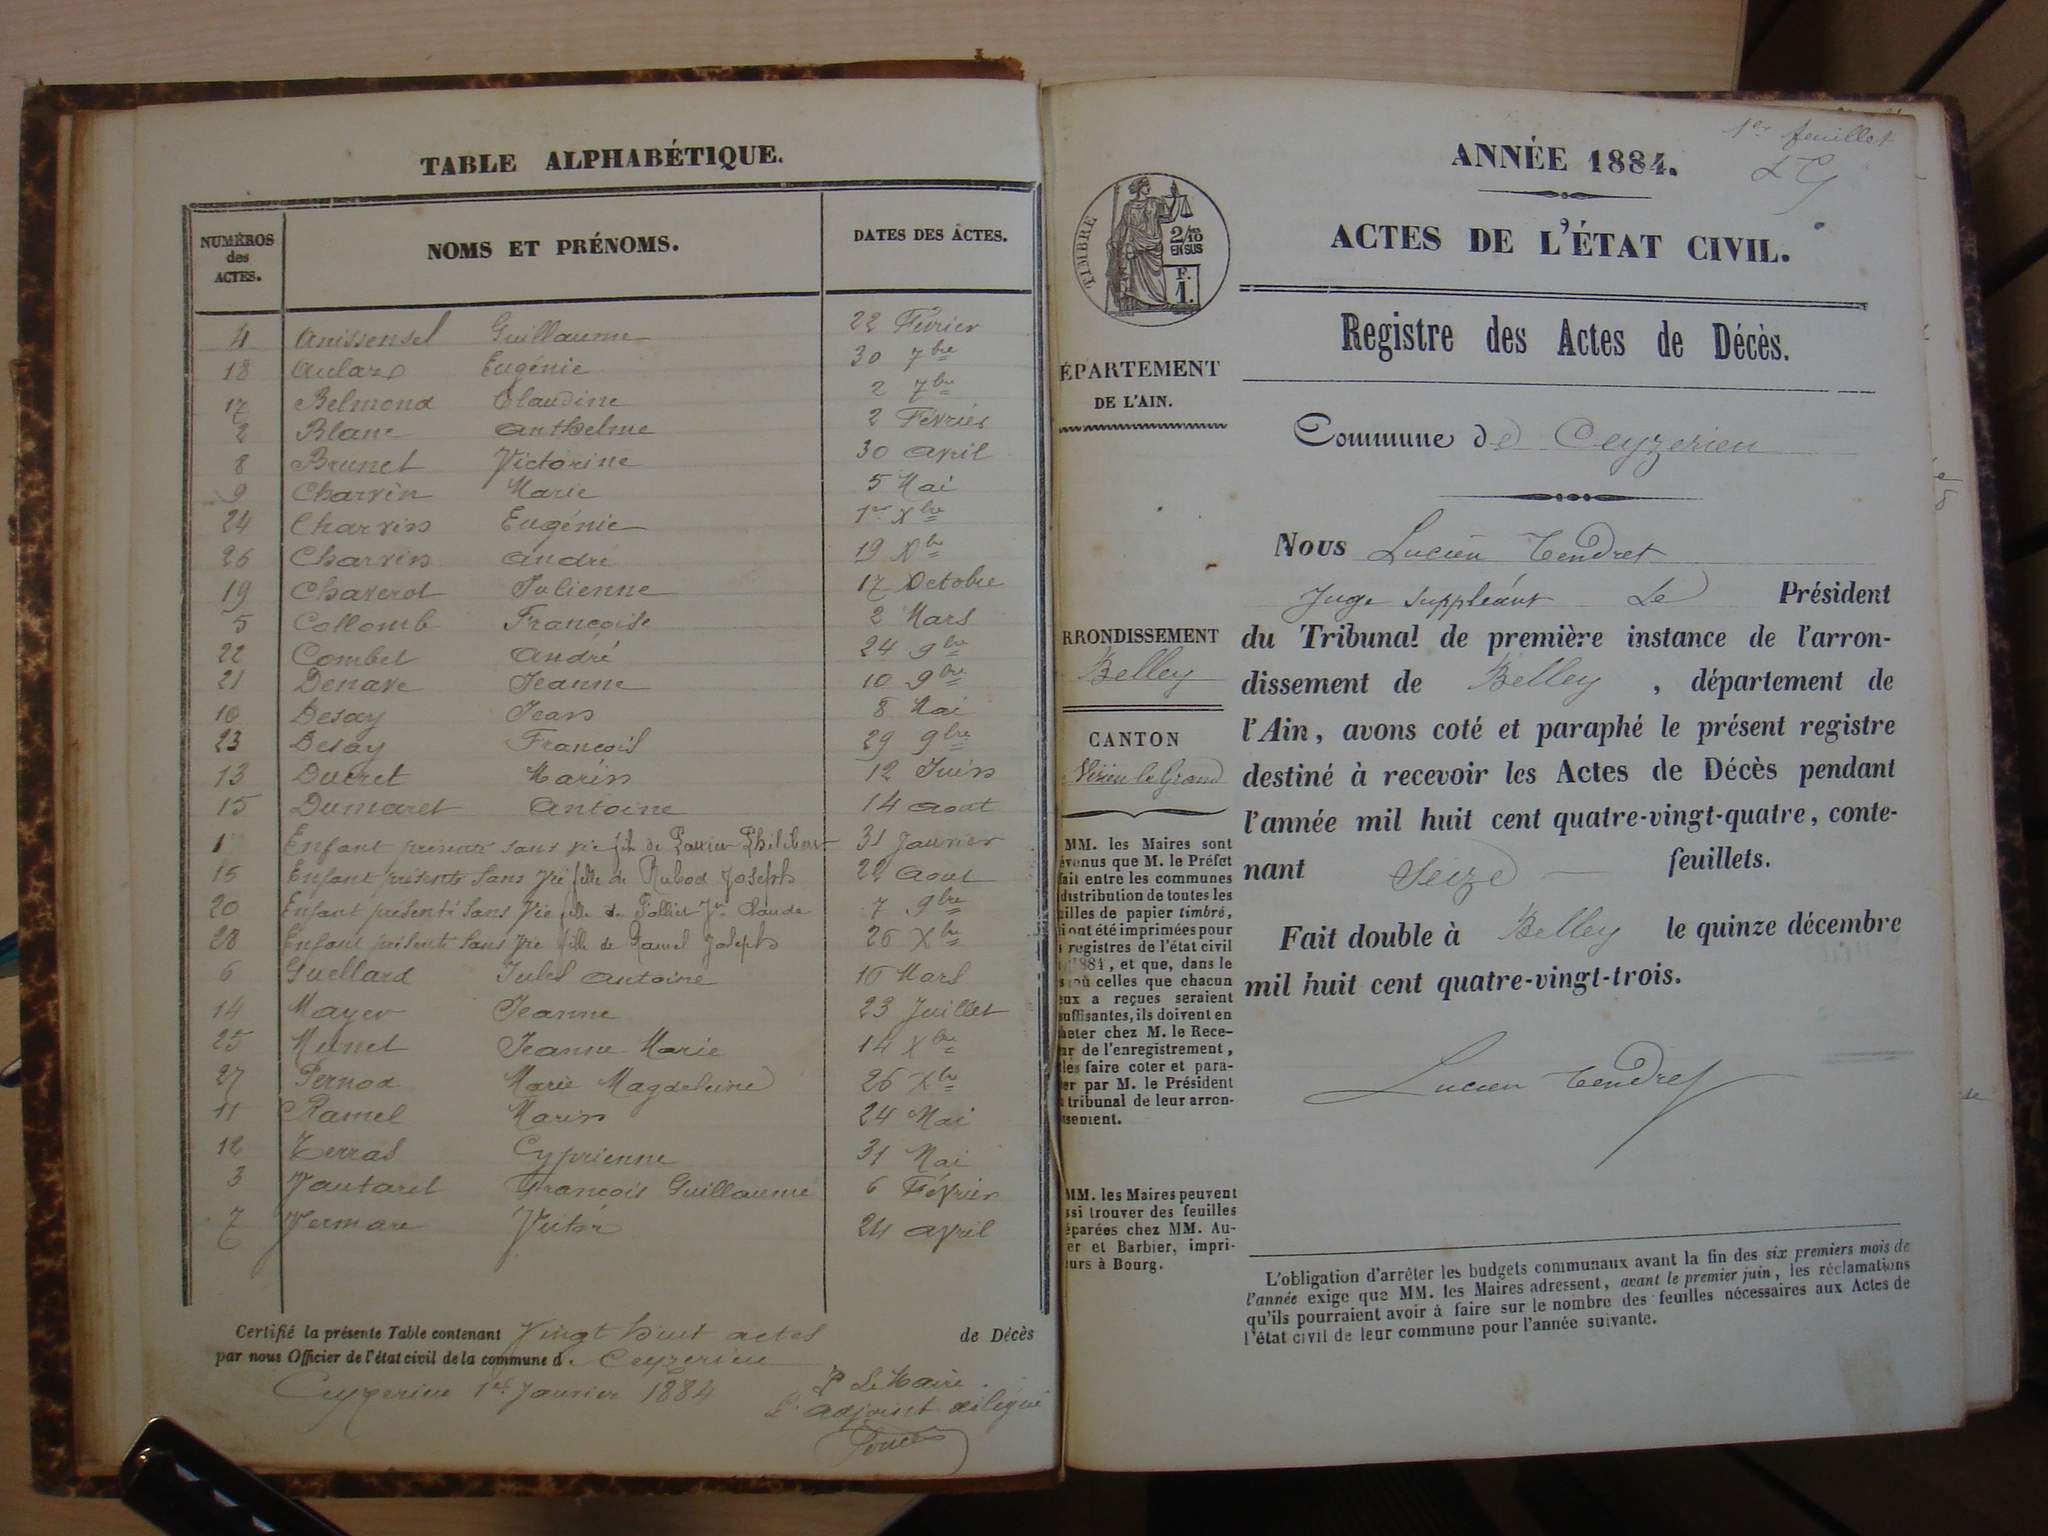 TABLE ALPHABÉTIQUE.
NUMÉROS des ACTES. NOMS ET PRÉNOMS. DATES DES ACTES.
4 Anissensel Guillaume 22 Février
18 Aulard Eugénie 30 7bre
17 Belmond Claudine 2 7bre
2 Blanc Anthelme 2 Février
8 Brunet Victorine 30 Avril
9 Charvin Marie 5 Mai
24 Charvin Eugénie 1er Xbre
26 Charvin André 19 Xbre
19 Chaverot Julienne 17 Octobre
5 Collomb Françoise 2 Mars
22 Combet André 24 9bre
21 Denave Jeanne 10 9bre
10 Desay Jean 8 Mai
23 Desay François 29 9bre
13 Ducret Marin 12 Juin
15 Dumaret Antoine 14 Aout
1 Enfant présenté sans vie fils de Philibert 31 Janvier
Enfant présenté sans vie fille de Rubod Joseph 22 Aout
20 Enfant présenté sans vie fille de Folliet Claude 7 9bre
28 Enfant présenté sans vie fille de Ramel Joseph 26 Xbre
6 Guellard Jules Antoine 16 Mars
14 Mayer Jeanne 23 Juillet
25 Munet Jeanne Marie 14 Xbre
27 Pernod Marie Magdeleine 26 Xbre
11 Ramel Marin 24 Mai
12 Terras Cyprienne 31 Mai
3 Vautaret François Guillaume 6 Février
7 Vermare Victor 24 Avril
Certifié la présente Table contenant Vingt huit actes de Décès
par nous Officier de l'état civil de la commune d Ceyzerieu
Ceyzerieu 1er Janvier 1884
P Le Maire
L'adjoint délégué
1er feuillet
LT
ANNÉE 1884.
ACTES DE L'ÉTAT CIVIL.
TIMBRE
2/10
EN SUS
F.
1.
Registre des Actes de Décès.
ÉPARTEMENT
DE L'AIN.
Commune de Ceyzerieu
Nous Lucien Tendret
Juge suppléant Le Président
du Tribunal de première instance de l'arron-
dissement de Belley, département de
l'Ain, avons coté et paraphé le présent registre
destiné à recevoir les Actes de Décès pendant
l'année mil huit cent quatre-vingt-quatre, conte-
nant Seize feuillets.
Fait double à Belley le quinze décembre
mil huit cent quatre-vingt-trois.
Lucien Tendret
RRONDISSEMENT
Belley
CANTON
Virieu le Grand
MM. les Maires sont
évenus que M. le Préfet
fait entre les communes
distribution de toutes les
uilles de papier timbré,
i ont été imprimées pour
s registres de l'état civil
1884, et que, dans le
s où celles que chacun
eux a reçues seraient
suffisantes, ils doivent en
heter chez M. le Rece-
ur de l'enregistrement,
les faire coter et para-
er par M. le Président
tribunal de leur arron-
ssement.
MM. les Maires peuvent
ssi trouver des feuilles
éparées chez MM. Au-
er et Barbier, impri-
eurs à Bourg.
L'obligation d'arrêter les budgets communaux avant la fin des six premiers mois de
l'année exige que MM. les Maires adressent, avant le premier juin, les réclamations
qu'ils pourraient avoir à faire sur le nombre des feuilles nécessaires aux Actes de
l'état civil de leur commune pour l'année suivante.